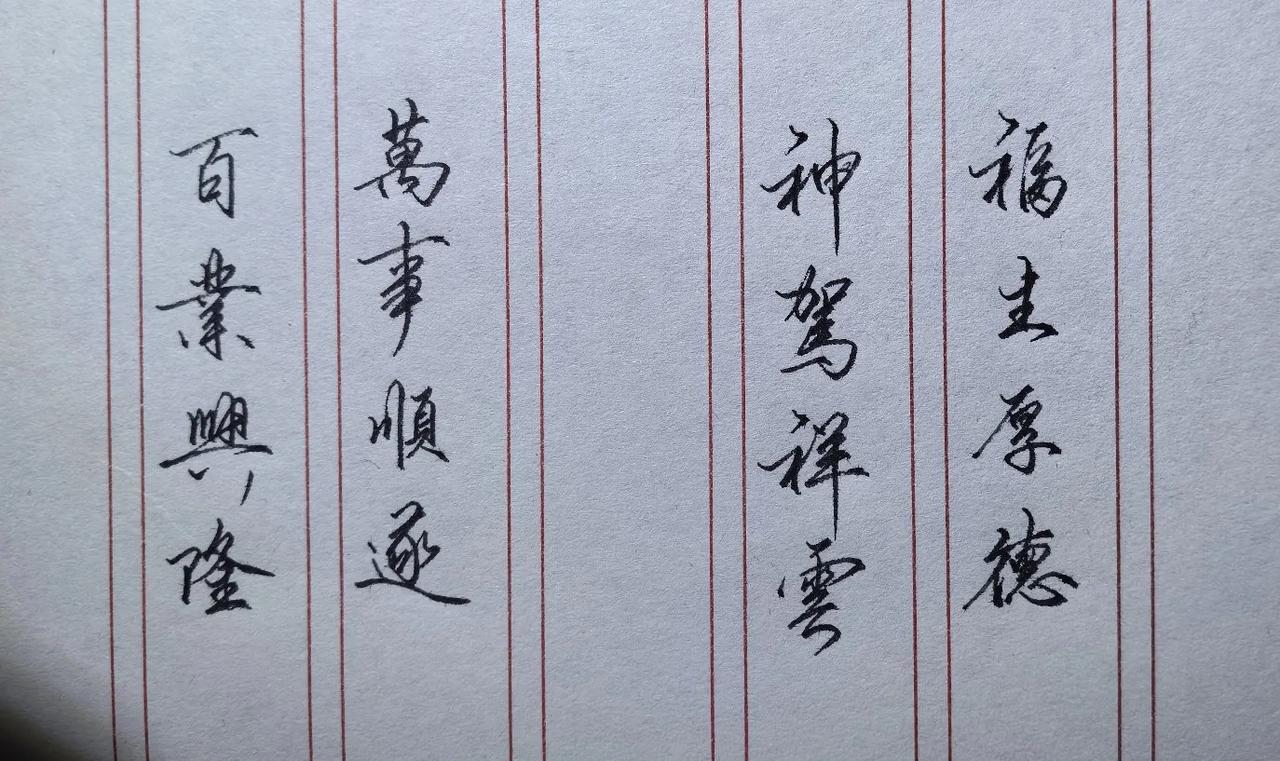 福生厚德
神駕祥雲
萬事順遂
百業興隆